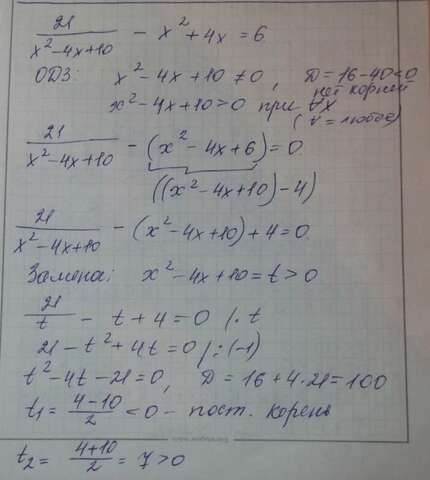 21/(x²-4x+10) - x²+4x = 6
ОДЗ: x²-4x+10≠0, D=16-40<0
нет корней
x²-4x+10>0 при ∀x
(∀ = любое)
21/(x²-4x+10) - (x²-4x+6)=0
((x²-4x+10)-4)
21/(x²-4x+10) - (x²-4x+10)+4=0
Замена: x²-4x+10=t>0
21/t - t+4=0 /·t
21-t²+4t=0 /:(-1)
t²-4t-21=0, D=16+4·21=100
t₁= (4-10)/2 <0 – пост. корень
t₂= (4+10)/2 = 7>0